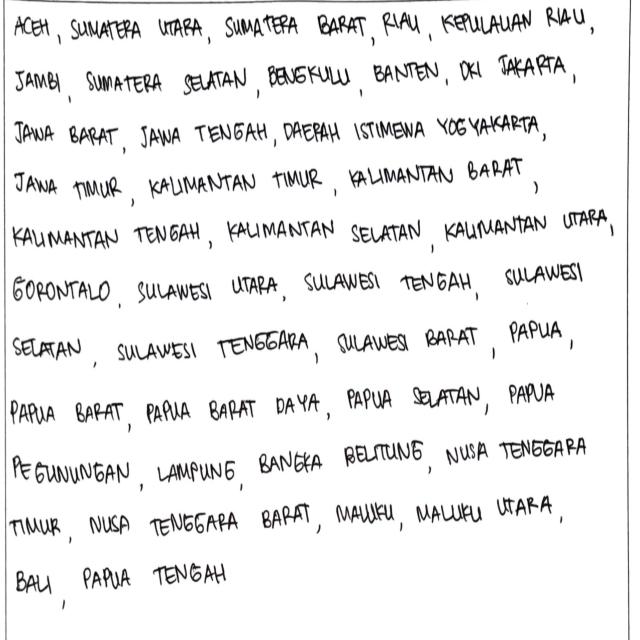 ACEH, SUMATERA UTARA, SUMATERA BARAT, RIAU, KEPULAUAN RIAU,
JAMBI, SUMATERA SELATAN, BENGKULU, BANTEN, DKI JAKARTA,
JAWA BARAT, JAWA TENGAH, DAERAH ISTIMEWA YOGYAKARTA,
JAWA TIMUR, KALIMANTAN TIMUR, KALIMANTAN BARAT,
KALIMANTAN TENGAH, KALIMANTAN SELATAN, KALIMANTAN UTARA,
GORONTALO, SULAWESI UTARA, SULAWESI TENGAH, SULAWESI
SELATAN, SULAWESI TENGGARA, SULAWESI BARAT, PAPUA,
PAPUA BARAT, PAPUA BARAT DAYA, PAPUA SELATAN, PAPUA
PEGUNUNGAN, LAMPUNG, BANGKA BELITUNG, NUSA TENGGARA
TIMUR, NUSA TENGGARA BARAT, MALUKU, MALUKU UTARA,
BALI, PAPUA TENGAH